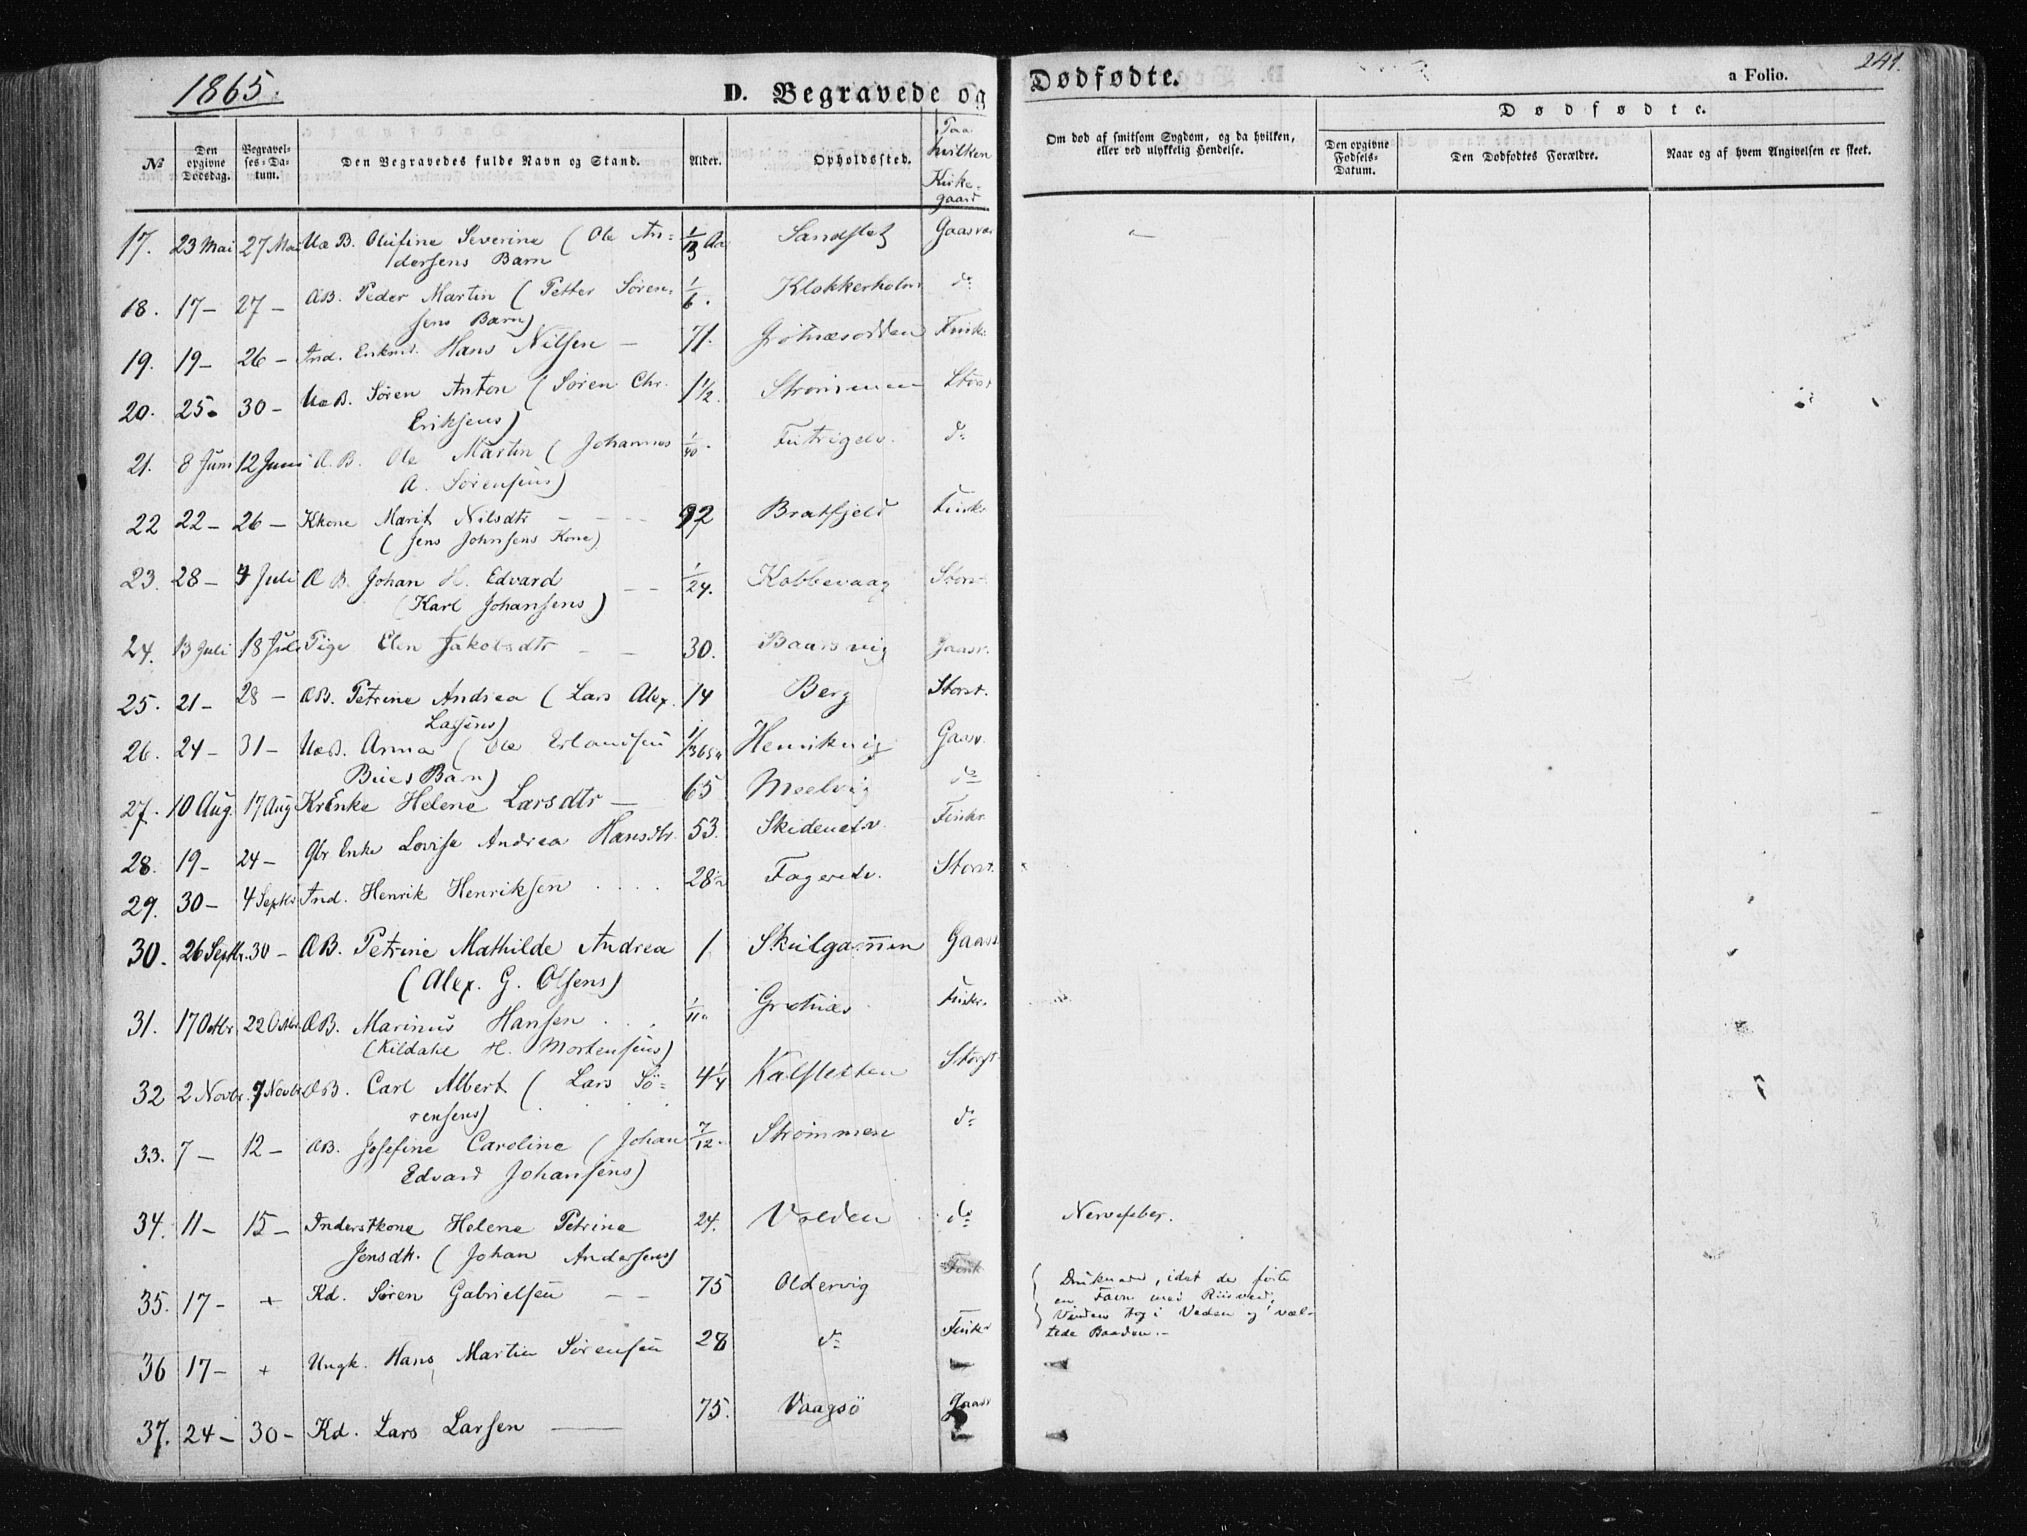 1865.
D. Begravede og Dødfødte.
a Folio.
241.
Dødfødte.
No
Den opgivne Dødsdag.
Begravelses-Datum.
Den Begravedes fulde Navn og Stand.
Alder.
Opholdssted.
Paa hvilken Kirkegaard
Om død af smitsom Sygdom, og da hvilken, eller ved ulykkelig Hendelse.
Den opgivne Fødsels-Datum.
Den Dødfødtes Forældre.
Naar og af hvem Angivelsen er skeet.
17. 23 Mai 27 Mai Uæ B. Olufine Severine ( Ole An- 1/13 Aar Sandslet Gaasvær
dersens Barn
18. 17 – 27 – ÆB. Peder Martin ( Petter Søren- 1/6. Klokkerholm do
sens Barn)
19. 19 – 26 – Ind. Enkmd. Hans Nilsen – 71. Grötnæsodden Finkr.
20. 25. 30 – UæB. Søren Anton ( Søren Chr. 1 1/2. Strømmen Storst
Eriksens)
21. 8 Juni 12 Juni Æ.B. Ole Martin ( Johannes 1/40. Futrigelv. do
A. Sørensens)
22 22 – 26 – Kkone Marit Nilsdtr – – – 92 Bratfjeld Finkr
( Jens Johnsens Kone)
23. 28 – 4 Juli Æ B. Johan H. Edvard – – 1/24. Kobbevaag Storst.
(Karl Johansens)
24. 13 Juli 18 Juli Pige Elen Jakobsdtr – – 30. Baarsvig Gaasv.
25. 21 – 28 – ÆB. Petrine Andrea ( Lars Alex. 14 Berg Storst.
Larsens)
26. 24 – 31 – UæB. Anna ( Ole Erlandsen 1/365 Henrikvig Gaasv.
Bues Barn)
27. 10 Aug. 17 Aug KrEnke Helene Larsdtr – 65 Meelvig do
28. 19 – 24 – Gbr Enke Lovise Andrea Hansdtr. 53. Skidenelv. Finkr
29. 30 – 4 Septbr Ind. Henrik Henriksen . . . . 28 1/2 Fagerelv. Storst.
30. 26 Septbr. 30 – ÆB. Petrine Mathilde Andrea 1. Skulgammen Gaasv
(Alex. G. Olsens)
31. 17 Octbr. 22 Octbr. ÆB. Marinus Hansen . . . 1/11 Grötnæs. Finkr.
(Kildahl H. Mortensens)
32 2 Novbr. 7 Novbr ÆB. Carl Albert ( Lars Sö- 4 1/4 Kalsletten Storst.
rensens)
33. 7 – 12 – ÆB. Josefine Caroline (Johan 7/12. Strømmen do
Edvard Johansens)
34. 11 – 15 – Inderstkone Helene Petrine 24. Valden do Nervefeber.
Jensdtr. ( Johan Andersens)
35. 17 – + Kd. Søren Gabrielsen – – 75 Oldervig Fink
Druknede, idet de førte
en Favn med Riisved,
Vinden tog i Veden og væl-
tede Baaden. –
36 17 – + Ungk. Hans Martin Sørensen 28 do Finkr
37. 24 – 30 – Kd. Lars Larsen – 75. Vaagsö Gaasv